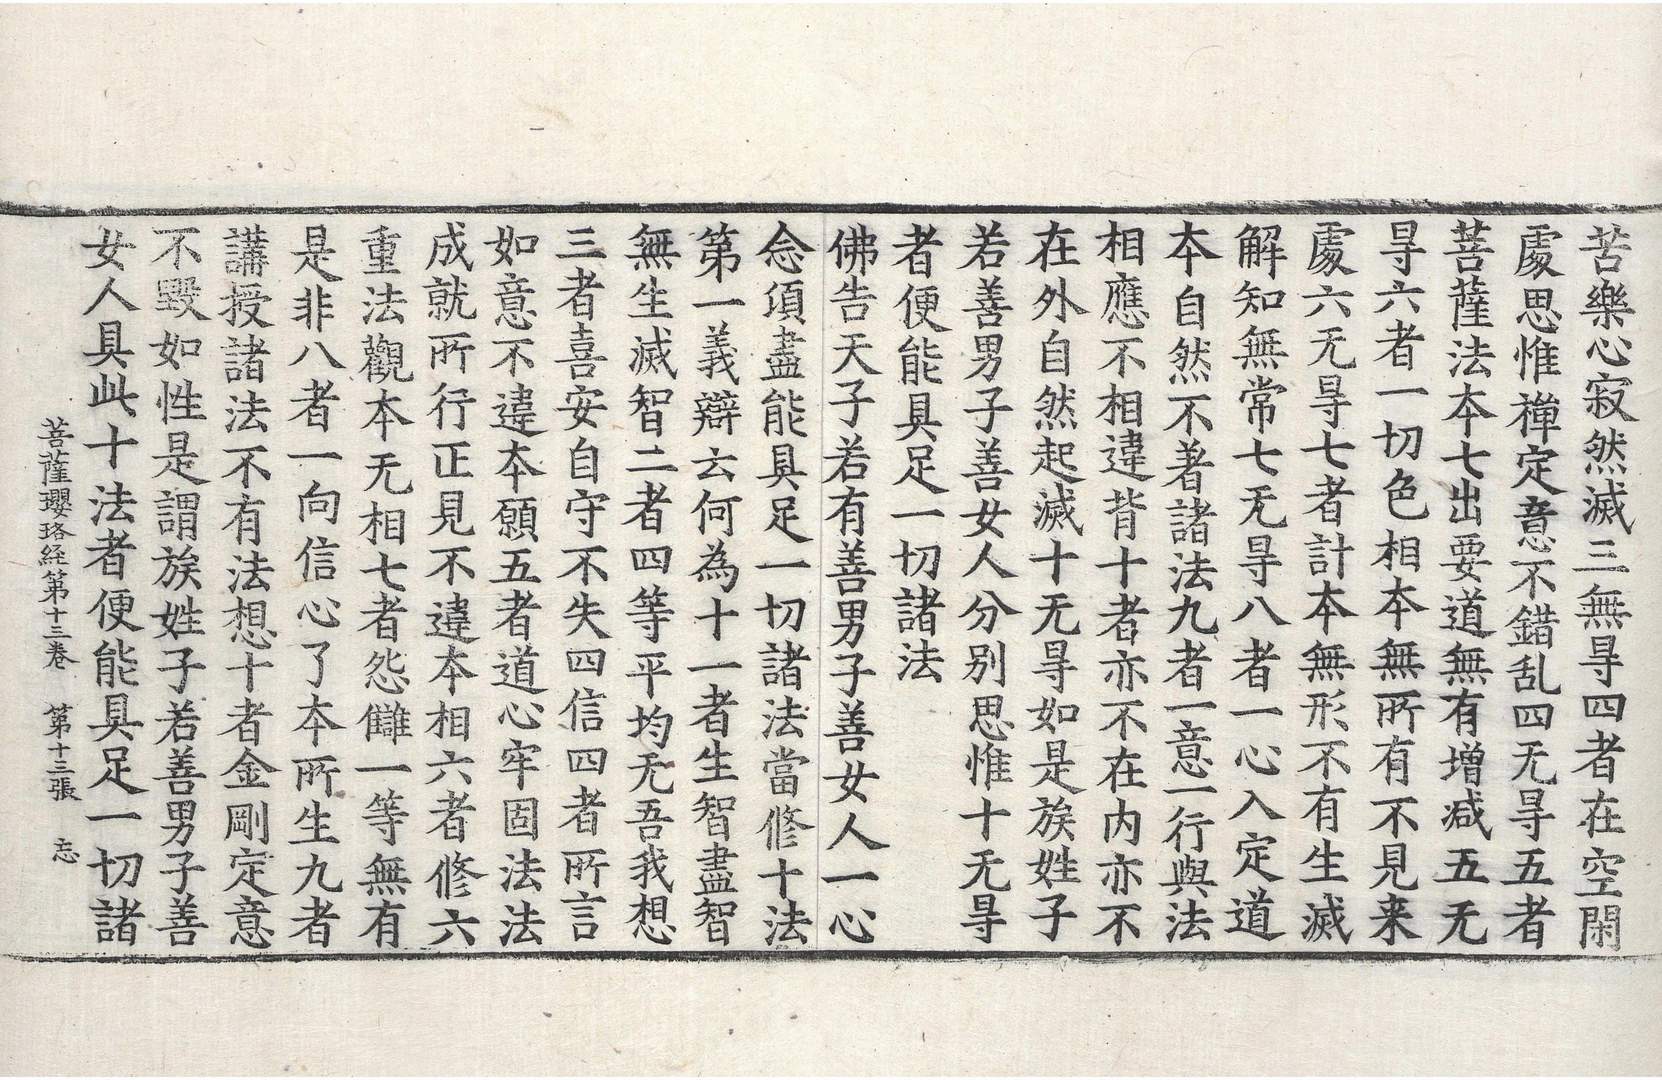 苦樂心寂然滅三無㝵四者在空閑
處思惟禪定意不錯乱四无㝵五者
菩薩法本七出要道無有增減五无
㝵六者一切色相本無所有不見来
處六无㝵七者計本無形不有生滅
解知無常七无㝵八者一心入定道
本自然不著諸法九者一意一行與法
相應不相違背十者亦不在内亦不
在外自然起滅十无㝵如是族姓子
若善男子善女人分别思惟十无㝵
者便能具足一切諸法
佛告天子若有善男子善女人一心
念須盡能具足一切諸法當修十法
第一義辯云何為十一者生智盡智
無生滅智二者四等平均无吾我想
三者喜安自守不失四信四者所言
如意不違本願五者道心牢固法法
成就所行正見不違本相六者修六
重法觀本无相七者怨讎一等無有
是非八者一向信心了本所生九者
講授諸法不有法想十者金剛定意
不毀如性是謂族姓子若善男子善
女人具此十法者便能具足一切諸
菩薩瓔珞経第十三卷　第十三張　忘